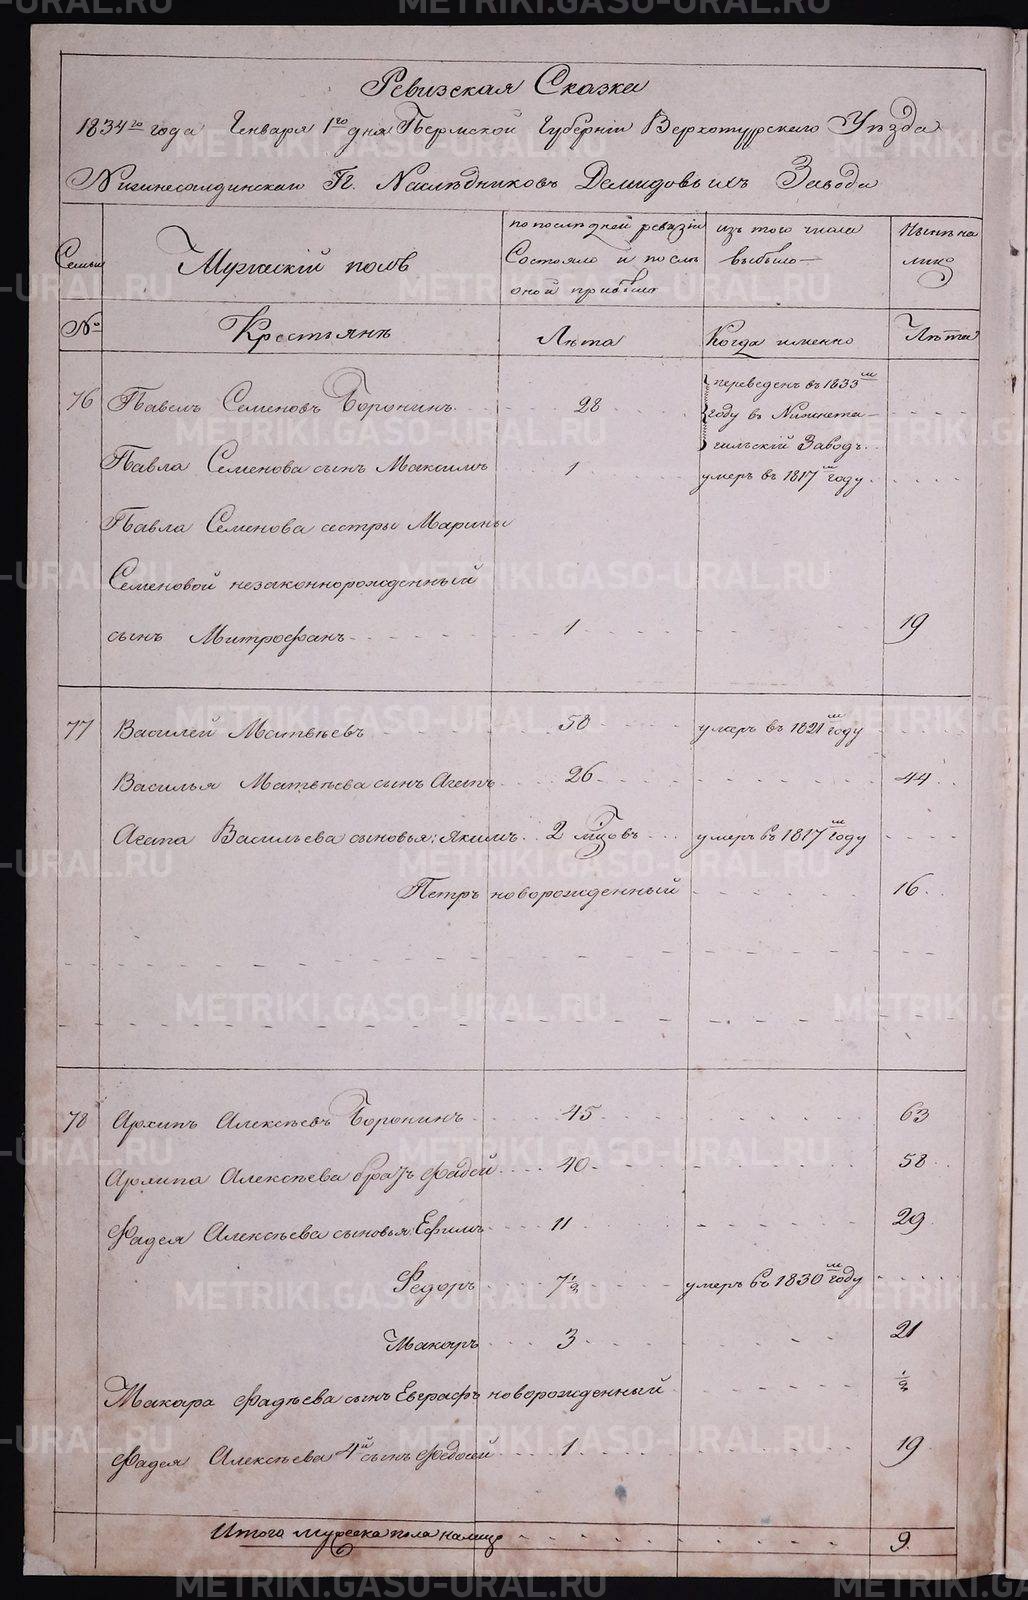 Ревизская Сказка
1834го года Генваря 1го дня Пермской Губернiи Верхотурскаго Уѣзда
Нижнесалдинскаго Гг. Наслѣдниковъ Демидовыхъ Завода
Семьи
Мужескiй полъ
по последней ревизiи
Состояло и послѣ
оной прибыло
изъ того числа
выбыло
Нынѣ на
лицо
№
Крестьянъ
Лѣта
Когда именно
Лѣта
76 Павелъ Семеновъ Воронинъ 28 переведенъ въ 1833м
году въ Нижнета-
гильскiй Заводъ
Павла Семенова сынъ Максимъ 1 умеръ въ 1817м году
Павла Семенова сестры Марины
Семеновой незаконнорожденный
сынъ Митрофанъ 1 19
77 Василей Матвѣевъ 58 умеръ въ 1821м году
Василья Матвѣева сынъ Агапъ 26 44
Агапа Васильева сыновья: Якимъ 2 умеръ въ 1817м году
Петръ новорожденный 16
78 Архипъ Алексѣевъ Воронинъ 45 63
Архипа Алексѣева братъ Фадей 40 58
Фадея Алексѣева сыновья: Ефимъ 11 29
Федоръ 7½ умеръ въ 1830м году
Макаръ 3 21
Макара Фадѣева сынъ Евграфъ новорожденный ½
Фадея Алексѣева 4й сынъ Федосей 1 19
Итого мужеска пола налицо 9.
METRIKI.GASO-URAL.RU